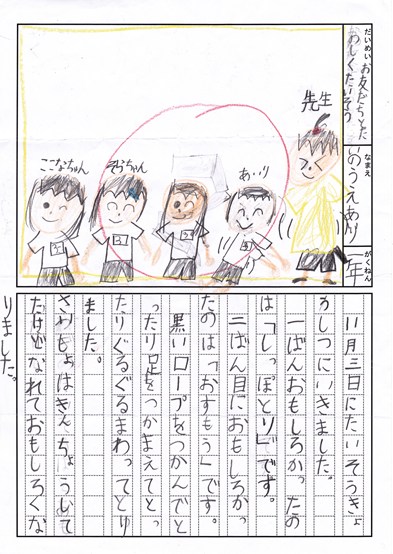 だいめい お友だちとした
おしくたいそう
なまえ いのうえあいり
がくねん 一年
先生
ここなちゃん
そらちゃん
あいり
11月三日にたいそうきょ
うしつにいきました。
一ばんおもしろかったの
は「しっぽとり」です。
二ばん目におもしろかっ
たのは「おすもう」です。
黒いロープをつかんでと
ったり足をつかまえてとっ
たりぐるぐるまわってとり
ました。
さいしょはきんちょうして
たけどなれておもしろくな
りました。